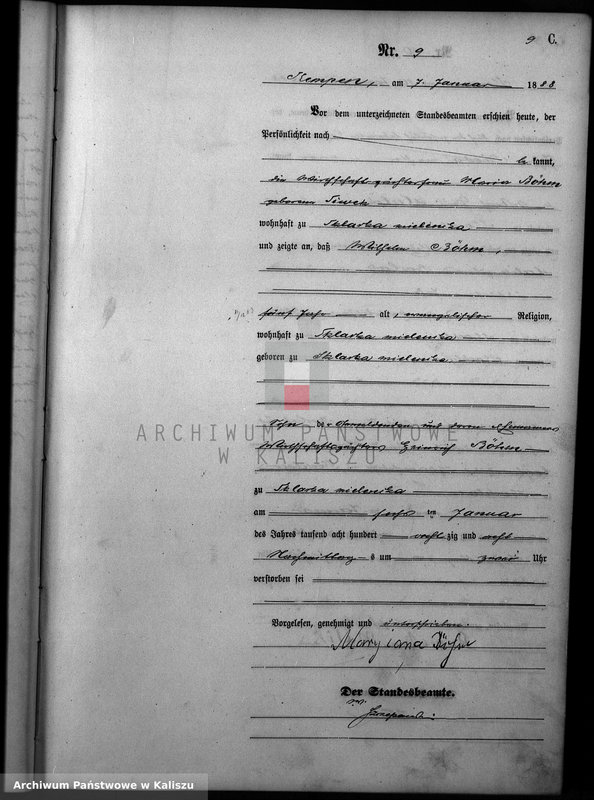 9 C.
Nr. 9
Kempen, am 7. Januar 1888
Vor dem unterzeichneten Standesbeamten erschien heute, der
Persönlichkeit nach
be kannt,
die Wirthschaftspächterfrau Maria Böhm
geborene
wohnhaft zu Sklarka mielencka
und zeigte an, daß Wilhelm Böhm,
fünf Jahr alt, evangelischer Religion,
wohnhaft zu Sklarka mielencka
geboren zu Sklarka mielencka
Sohn der Anmeldenden und deren Ehemannes
Wirthschaftspächters Heinrich Böhm
zu Sklarka mielencka
am sechs ten Januar
des Jahres tausend acht hundert acht zig und acht
Nachmittag s um zwei Uhr
verstorben sei
Vorgelesen, genehmigt und unterschrieben.
Maryiana
Der Standesbeamte.
ARCHIWUM PAŃSTWOWE
W KALISZU
Archiwum Państwowe w Kaliszu